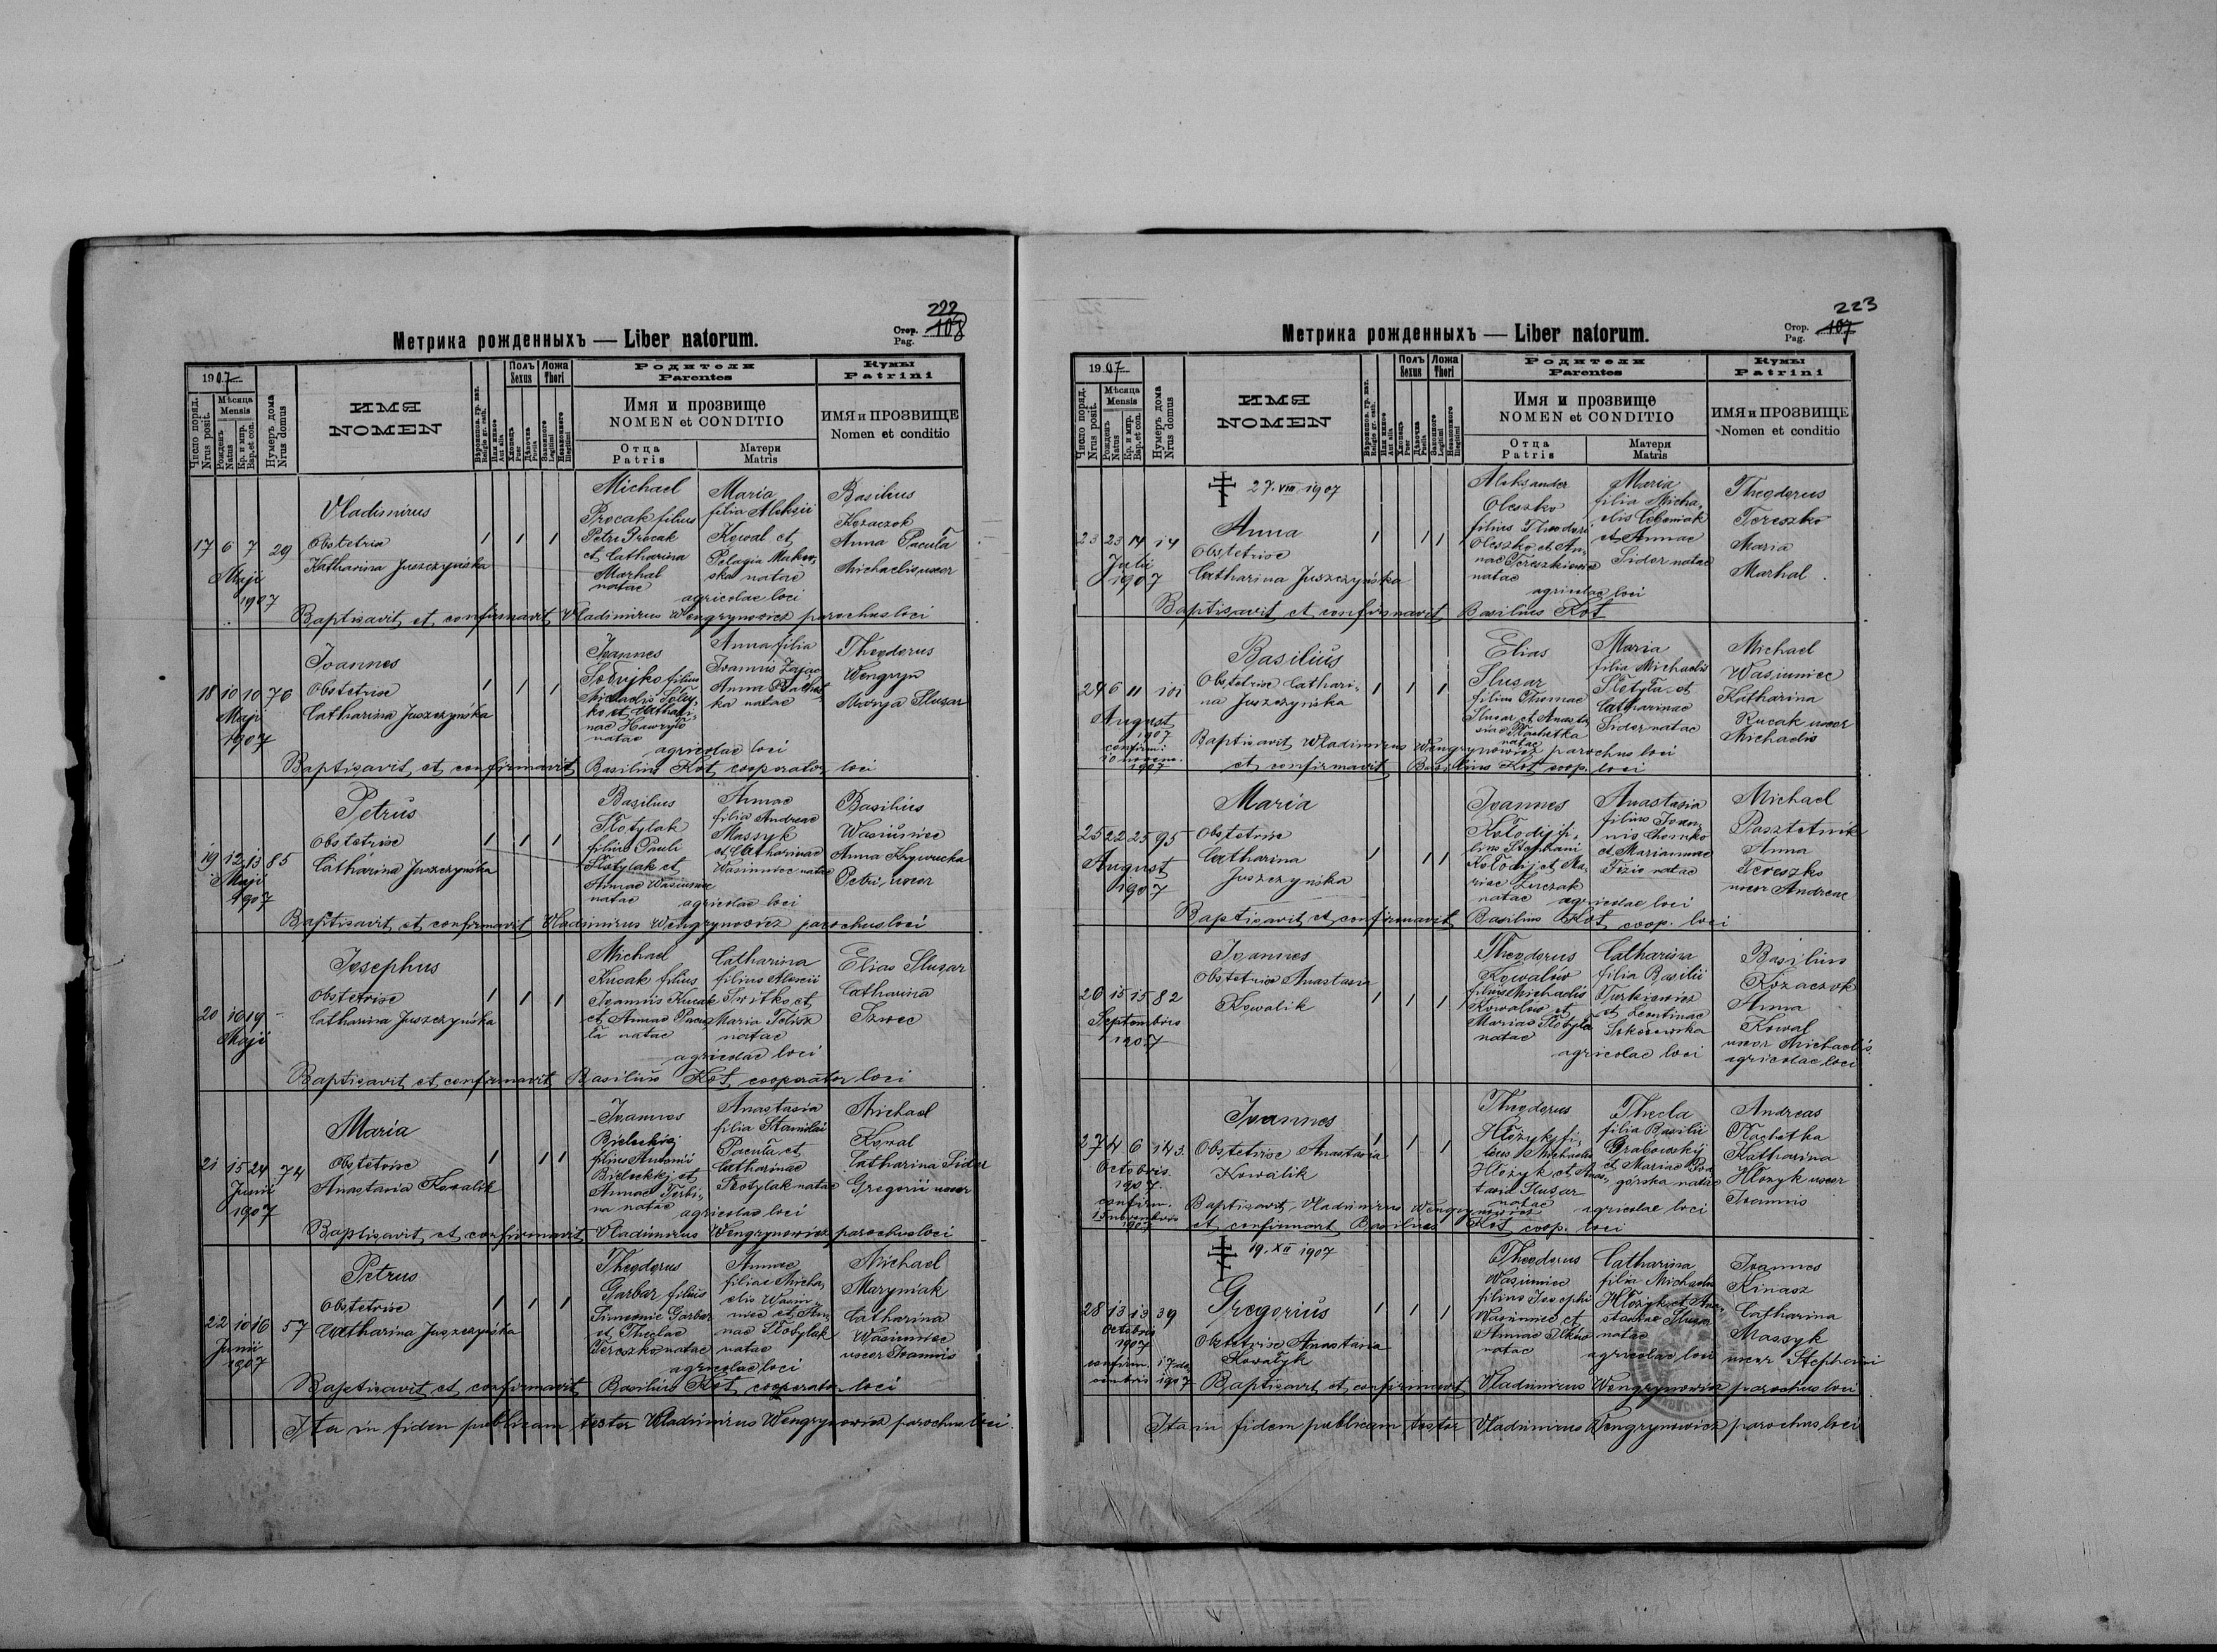 222
108
Стор.
Pag.
Метрика рожденныхъ — Liber natorum.
1907
Число поряд.
Nrus posit.
Мѣсяца
Mensis
Рожденъ
Natus
Кр. и мир.
Bap. et con.
Нумеръ дома
Nrus domus
ИМЯ
NOMEN
Полъ
Sexus
Ложа
Thori
Родители
Parentes
Имя и прозвище
NOMEN et CONDITIO
Отца
Patris
Матери
Matris
Кумы
Patrini
ИМЯ и ПРОЗВИЩЕ
Nomen et conditio
17 6 7 29
Maji
1907
Vladimirus
Obstetrix
Katharina Juszczyńska
Michael
Procak filius
Petri Procak
et Catharina
Marhal
natae
Maria
filia Aleksii
Kowal et
Pelagia
natae
agricolae loci
Basilius
Kozaczok
Anna Pacuła
Michaelis uxor
Baptisavit et confirmavit Vladimirus Wengrynowicz parochus loci
18 10 10 76
Maji
1907
Ioannes
Obstetrix
Catharina Juszczyńska
Ioannes
filius
Michaelis
et Cathari-
nae Hawryło
natae
Anna filia
Ioannis Zając
Anna
ka natae
agricolae loci
Theodorus
Wengryn
Marya Slusar
Baptisavit et confirmavit Basilius Kot cooperator loci
19 12 13 85
Maji
1907
Petrus
Obstetrix
Catharina Juszczyńska
Basilius
Słotylak
filius Pauli
Słotylak et
Annae Wasiuniec
natae
Annae
filia Andreae
Massyk
et Catharinae
Wasiuniec natae
agricolae loci
Basilius
Wasiuniec
Anna Krywucka
Petri uxor
Baptisavit et confirmavit Vladimirus Wengrynowicz parochus loci
20 16 19 -
Maji
Josephus
Obstetrix
Catharina Juszczyńska
Michael
Kucak filius
Ioannis Kucak
et Annae Pacu-
ła natae
Catharina
filius Alexii
Switko et
Maria Felisz
natae
agricolae loci
Elias Slusar
Catharina
Szwec
Baptisavit et confirmavit Basilius Kot cooperator loci
21 15 24 74
Junii
1907
Maria
Obstetrix
Anastasia Kowalik
Ioannes
Bieleckij
filius Antonii
Bieleckij et
Annae Terbi-
na natae
Anastasia
filia Stanislai
Pacuła et
Catharinae
Słotylak natae
agricolae loci
Michael
Kowal
Catharina Sidor
Gregorii uxor
Baptisavit et confirmavit Vladimirus Wengrynowicz parochus loci
22 10 16 57
Junii
1907
Petrus
Obstetrix
Catharina Juszczyńska
Theodorus
Garbar filius
Simeonis Garbar
et Theclae
Tereszko natae
Annae
filiae Micha-
elis Wasiu-
niec et An-
nae Słotylak
natae
agricolae loci
Michael
Maryniak
Catharina
Wasiuniec
uxor Ioannis
Baptisavit et confirmavit Basilius Kot cooperator loci
Ita in fidem publicam testor Vladimirus Wengrynowicz parochus loci.
223
107
Стор.
Pag.
Метрика рожденныхъ — Liber natorum.
1907
Число поряд.
Nrus posit.
Мѣсяца
Mensis
Рожденъ
Natus
Кр. и мир.
Bap. et con.
Нумеръ дома
Nrus domus
ИМЯ
NOMEN
Полъ
Sexus
Ложа
Thori
Родители
Parentes
Имя и прозвище
NOMEN et CONDITIO
Отца
Patris
Матери
Matris
Кумы
Patrini
ИМЯ и ПРОЗВИЩЕ
Nomen et conditio
27. VIII 1907
23 23 14 14
Julii
1907
Anna
Obstetrix
Catharina Juszczyńska
Aleksander
Oleszko
filius Theodori
Oleszko et An-
nae Tereszkiewicz
natae
Maria
filia Micha-
elis
et Annae
Sidor natae
agricolae loci
Theodorus
Tereszko
Maria
Marhal
Baptisavit et confirmavit Basilius Kot
24 6 11 101
August
1907
confirm:
10 novem.
1907
Basilius
Obstetrix Cathari-
na Juszczyńska
Elias
Slusar
filius Thomae
Slusar et Anasta-
siae Płachetka
natae
Maria
filia Michaelis
Słotyła et
Catharinae
Sidor natae
Michael
Wasiuniec
Katharina
Kucak uxor
Michaelis
Baptisavit Wladimirus Wengrynowicz parochus loci
et confirmavit Basilius Kot coop. loci
25 22 25 95
August
1907
Maria
Obstetrix
Catharina
Juszczyńska
Ioannes
Kołodij fi-
lius Stephani
Kołodij et Ma-
riae Zurczak
natae
Anastasia
filius Ioan-
nis Chomko
et Mariannae
Fizio natae
agricolae loci
Michael
Pasztetnik
Anna
Tereszko
uxor Andreae
Baptisavit et confirmavit Basilius Kot coop. loci
26 15 15 82
Septembris
1907
Ioannes
Obstetrix Anastasia
Kowalik
Theodorus
Kowalów
filius Michaelis
Kowalów et
Mariae Słotyła
natae
Catharina
filia Basilii
Turkiewicz
et Leontinae
Sokołowska
agricolae loci
Basilius
Kozaczok
Anna
Kowal
uxor Michaelis
agricolae loci
27 4 6 143.
Octobris.
1907.
confirm.
15 novembris
1907
Ioannes
Obstetrix Anastasia
Kowalik
Theodorus
Hłożyk fi-
lius Michaelis
Hłożyk et Anas-
tasia Slusar
natae
Thecla
filia Basilii
Grabowskij
et Mariae Pod-
górska natae
agricolae loci
Andreas
Płachetka
Katharina
Hłożyk uxor
Ioannis
Baptisavit Vladimirus Wengrynowicz
et confirmavit Basilius Kot coop. loci
19. XII 1907
28 13 13 39
Octobris
1907
confirm. 17 de-
cembris 1907
Gregorius
Obstetrix Anastasia
Kowalyk
Theodorus
Wasiuniec
filius Josephi
Wasiuniec et
Annae Ilkow
natae
Catharina
filia Michaelis
Hłożyk et Ana-
stasiae Slusar
natae
agricolae loci
Ioannes
Kinasz
Catharina
Massyk
uxor Stephani
Baptisavit et confirmavit Vladimirus Wengrynowicz parochus loci
Ita in fidem publicam testor Vladimirus Wengrynowicz parochus loci